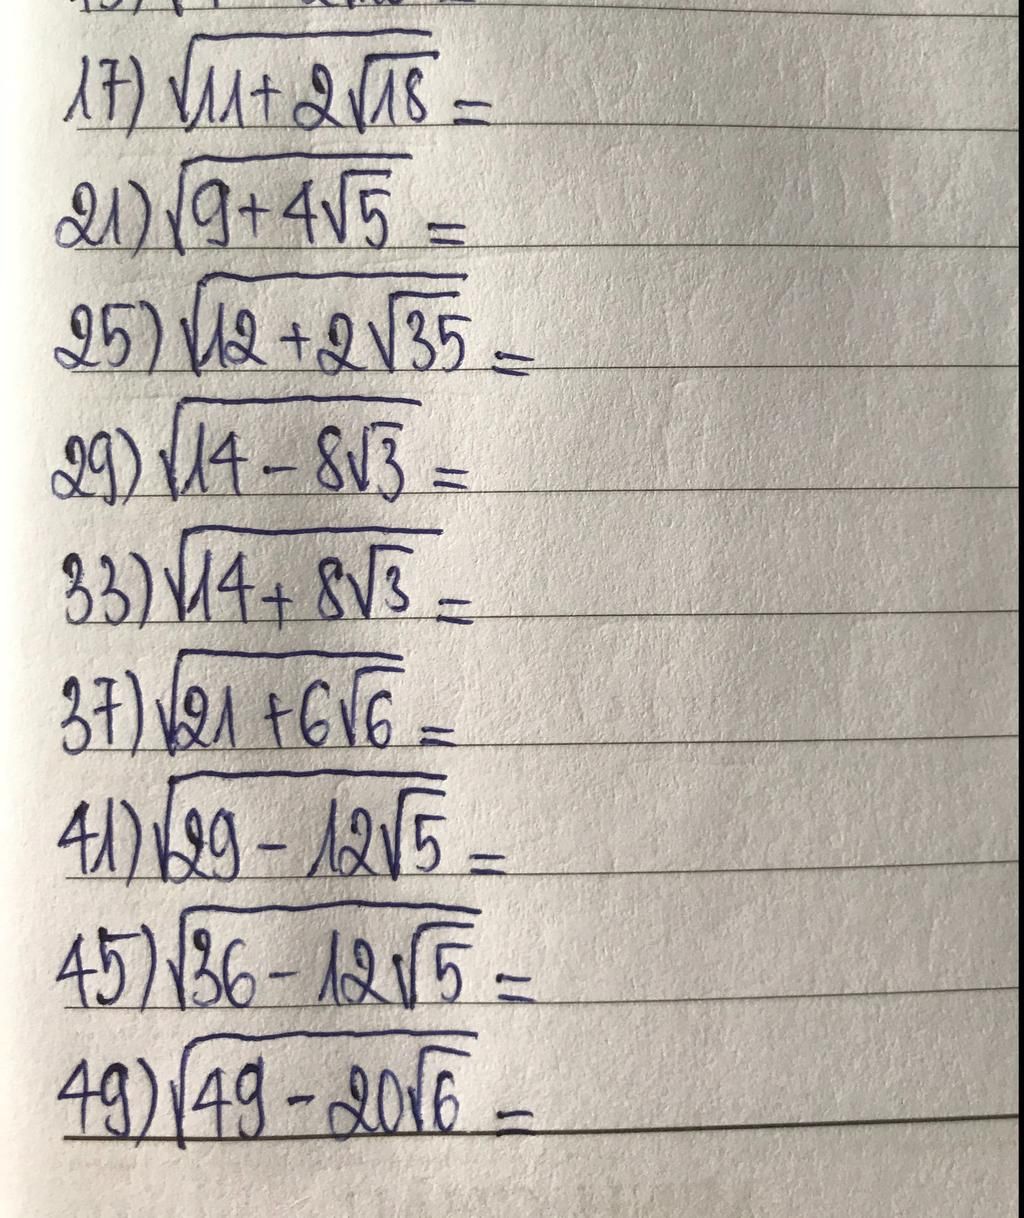 17) √(11+2√18) =
21) √(9+4√5) =
25) √(12+2√35) =
29) √(14-8√3) =
33) √(14+8√3) =
37) √(21+6√6) =
41) √(29-12√5) =
45) √(36-12√5) =
49) √(49-20√6) =